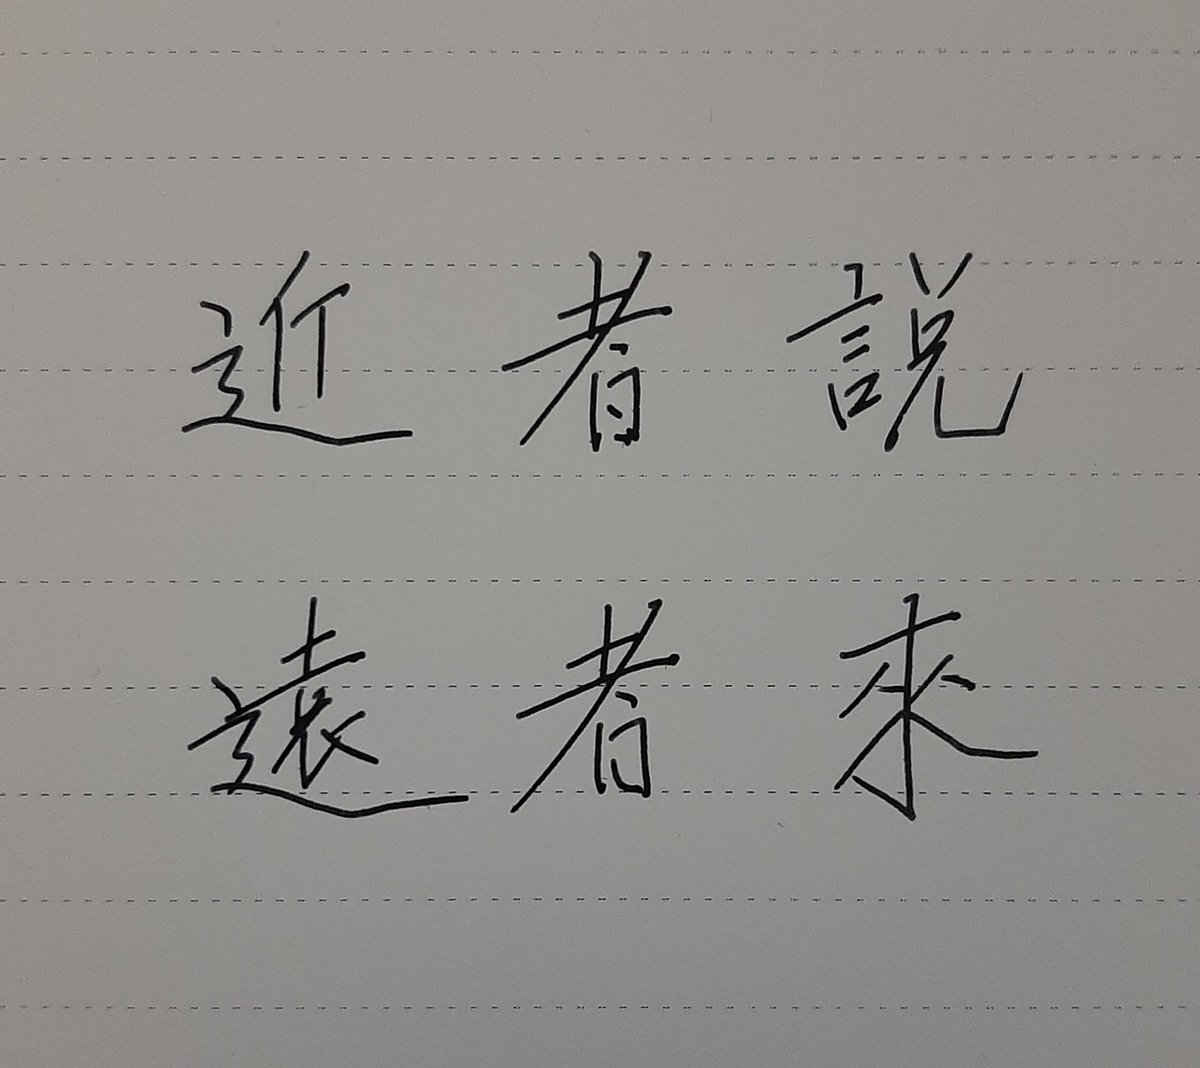 近者説
遠者來